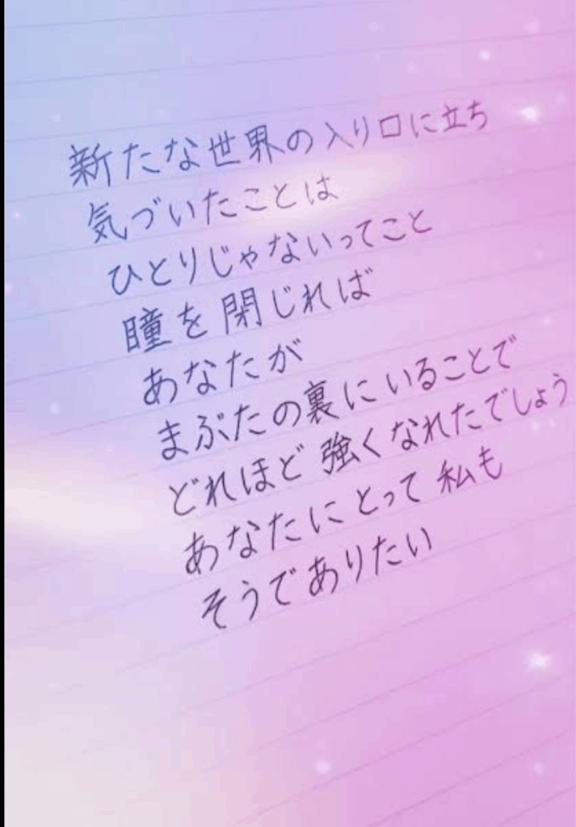 新たな世界の入り口に立ち
気づいたことは
ひとりじゃないってこと
瞳を閉じれば
あなたが
まぶたの裏にいることで
どれほど強くなれたでしょう
あなたにとって私も
そうでありたい